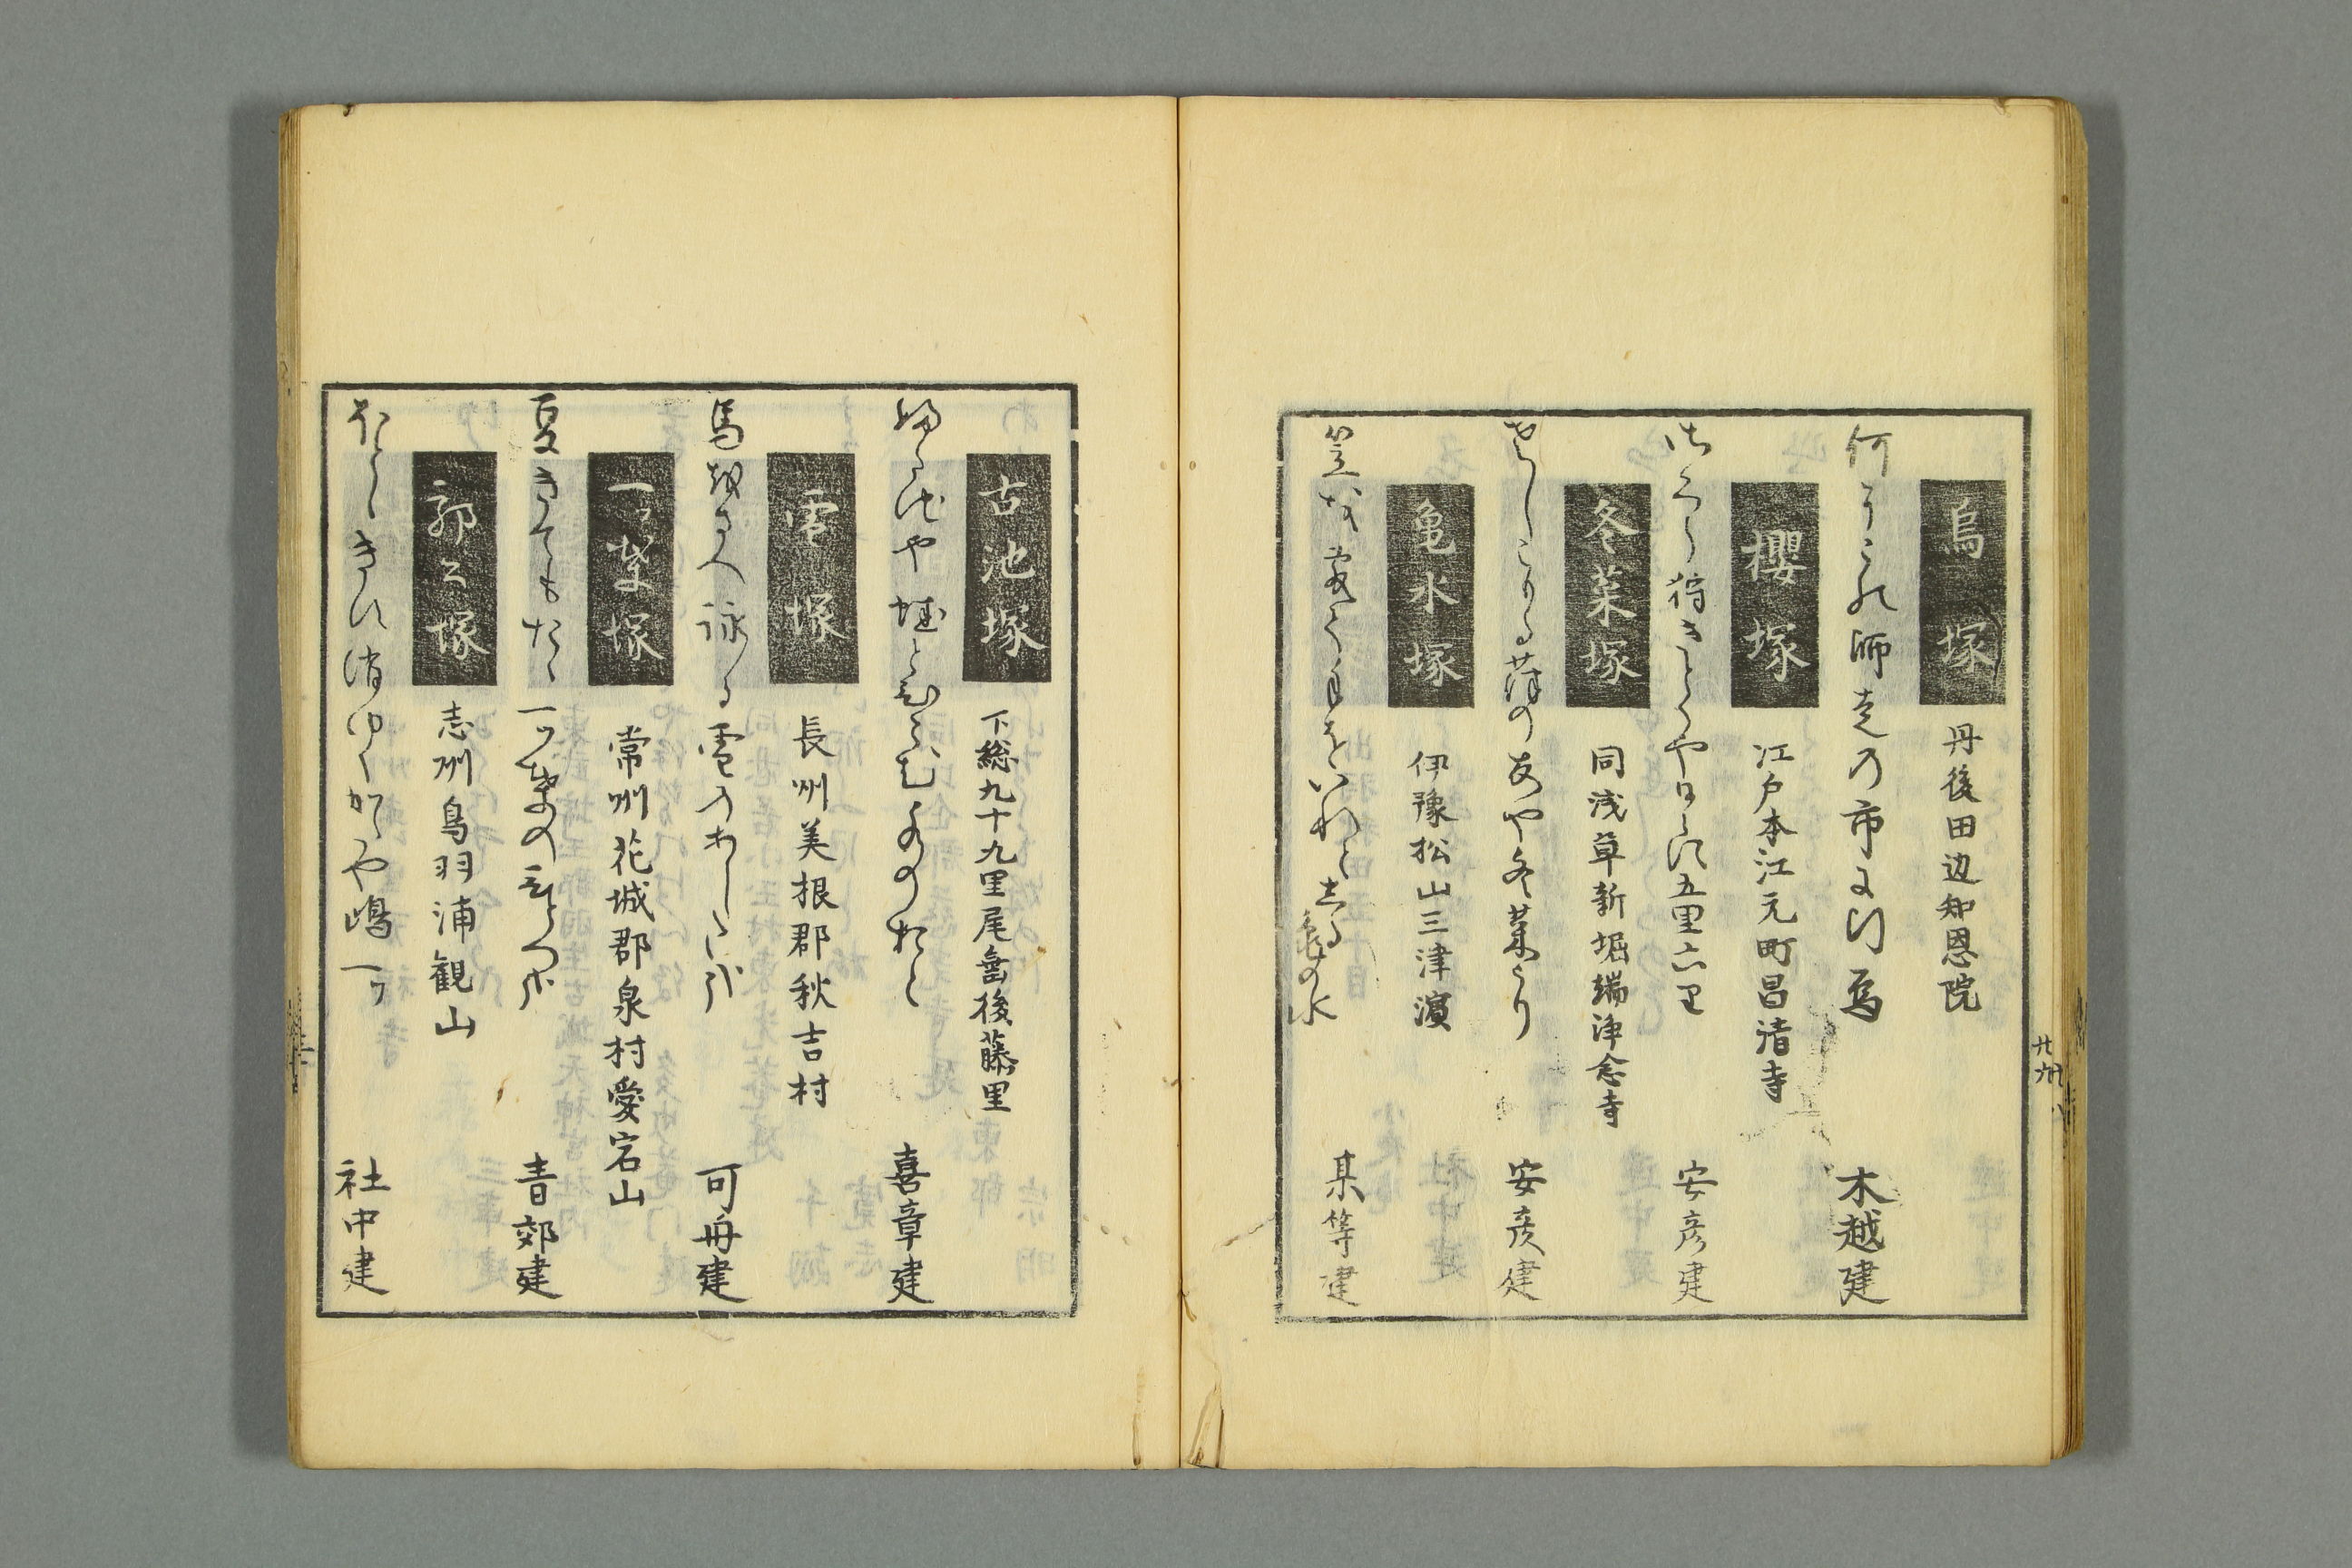 烏塚　丹後田辺知恩院
何にこの師走の市に行烏　木越建
櫻塚　江戸本江元町昌清寺
さくら狩きとくや日ゝに五里六里　安彦建
冬菜塚　同浅草新堀端浄念寺
さしこもる葎の友や冬菜うり　安彦建
亀水塚　伊豫松山三津濵
笠を　手をいれてしる亀の水　某等建
廿九
古池塚　下総九十九里尾垂後藤里
婦る池や蛙とひこむ水のおと　喜章建
雪塚　長州美根郡秋吉村
馬越さへ詠る雪のあしたか那　可舟建
一ッ葉塚　常州花城郡泉村愛宕山
夏きてもたゝ一ッ葉のひとつ哉　青郊建
郭公塚　志州鳥羽浦観山
ほとゝきす消ゆくかたや嶋一ッ　社中建